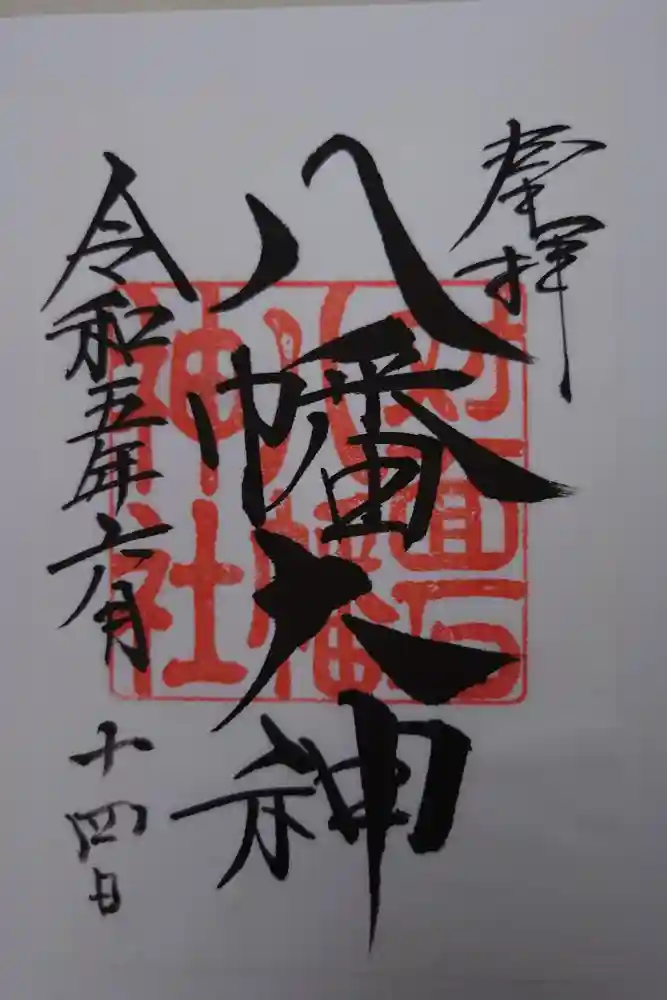 奉拝
八幡大神
令和五年六月十四日
対面石
八幡
神社